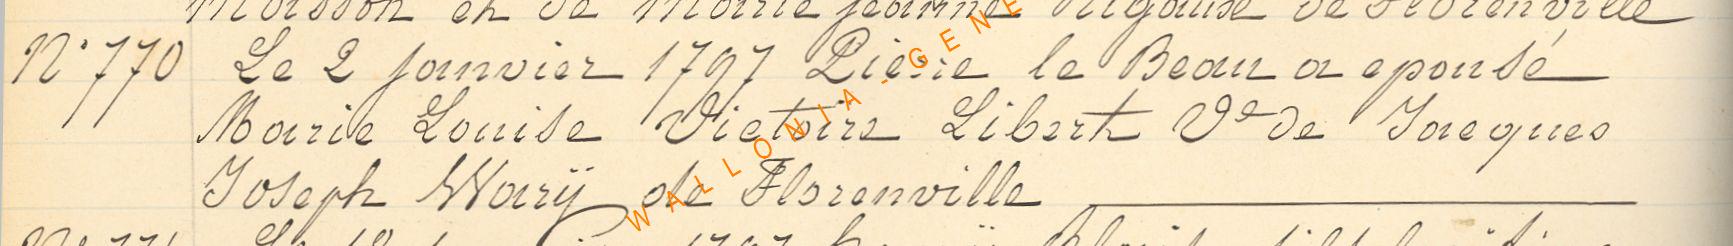 Moisson et de Marie Jeanne Rigaux de Florenville
N° 770 Le 2 janvier 1797 Pierre le Beau a epousé
Marie Louise Victoire Libert Ve de Jacques
Joseph Warÿ de Florenville
WALLONIA-GENE